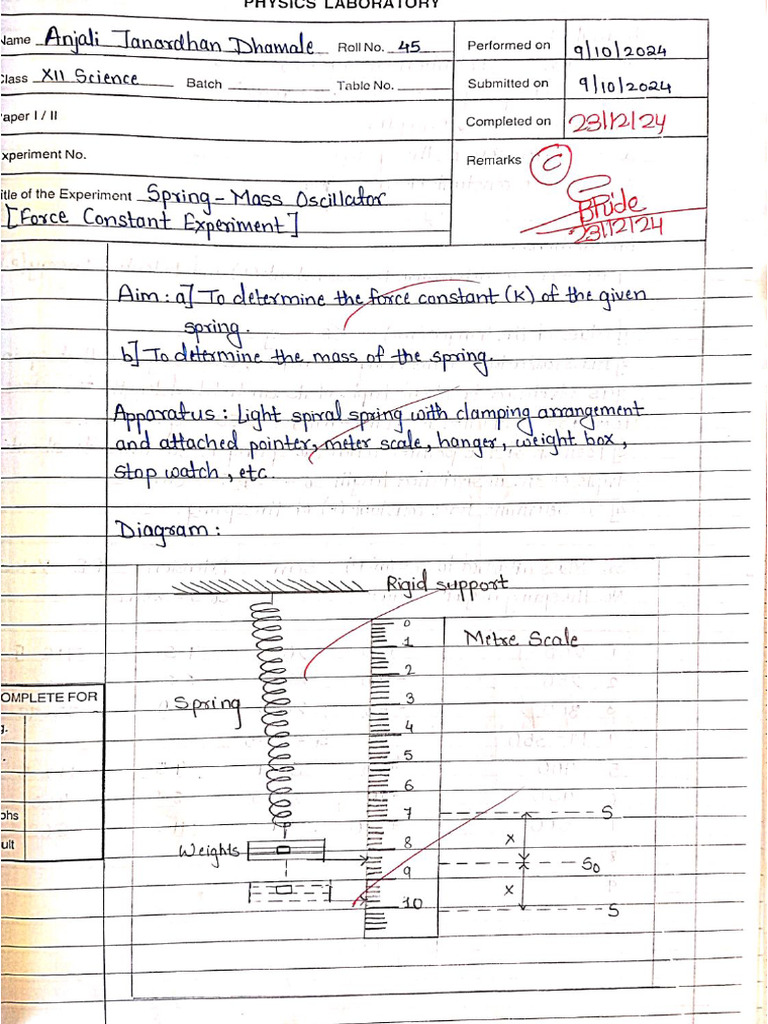 PHYSICS LABORATORY
Name Anjali Janardhan Dhamale Roll No. 45 Performed on 9/10/2024
Class XII Science Batch Table No. Submitted on 9/10/2024
Paper I / II Completed on 23/12/24
Experiment No. Remarks C
Title of the Experiment Spring-Mass Oscillator
[Force Constant Experiment]
23/12/24
Aim: a] To determine the force constant (K) of the given
spring.
b] To determine the mass of the spring.
Apparatus: Light spiral spring with clamping arrangement
and attached pointer, meter scale, hanger, weight box,
stop watch, etc.
Diagram:
Rigid support
0
1 Metre Scale
2
OMPLETE FOR
Spring
3
g.
4
5
6
7 S
phs
ult
x
8
Weights
S0
9
x
10 S